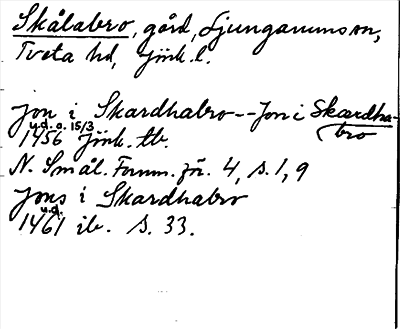 Skålabro, gård, Ljungarums sn,
Tveta hd, Jönk. l.
Jon i Skardhabro -- Jon i Skærdha-
bro
u.d. o. 15/3
1456 Jönk. tb.
N. Smål. Fornm. för. 4, s. 1, 9
Jons i Skardhabro
u.d.
1461 ib. S. 33.